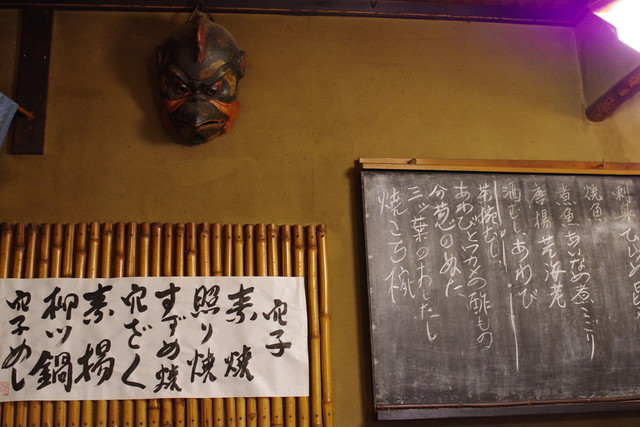 穴子
素焼
照り焼
すずめ焼
穴ざく
素揚
柳川鍋
穴子めし
刺身
焼魚
煮魚 あいなめ煮こごり
唐揚 芝海老
酒むし あわび
茶碗むし
あわびとわかめの酢もの
分葱のぬた
三ッ葉のおしたし
焼さつま椀